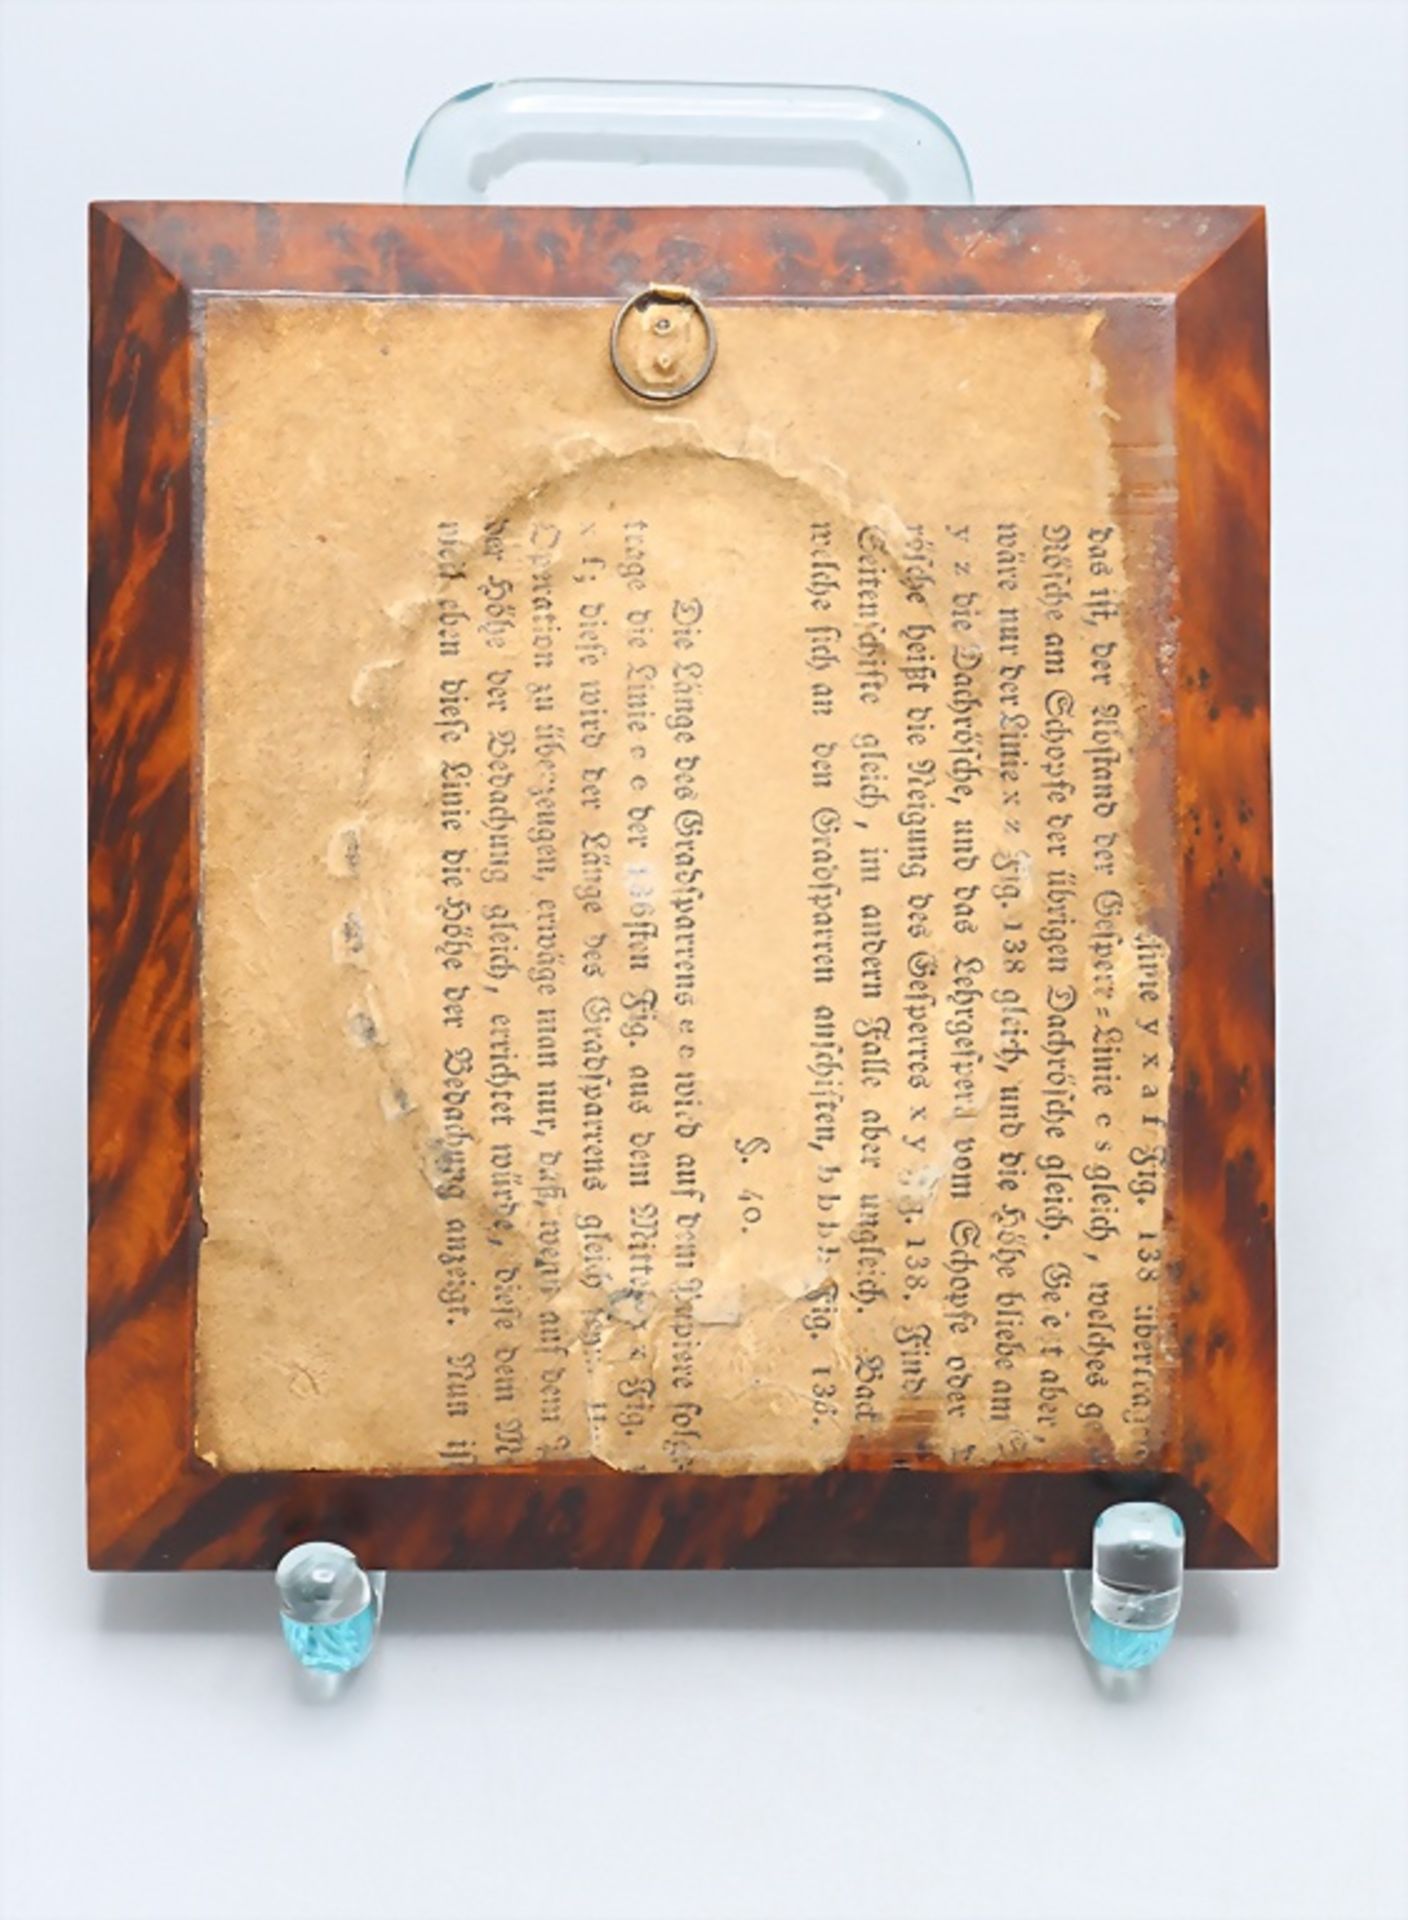 Linie y x a f Fig. 138
das ist, der Abstand der Gesperr⸗Linie e s gleich, welches
Rösche am Schopfe der übrigen Dachrösche gleich. aber,
wäre nur der Linie x z Fig. 138 gleich, und die Höhe bliebe am
y z die Dachrösche, und das Lehrgesperr vom Schopfe oder
rösche heißt die Neigung des Gesperres x y Fig. 138. Sind
Seitenschifte gleich, im andern Falle aber ungleich.
welche sich an den Gradsparren anschiften, b b b Fig. 138.
§. 40.
Die Länge des Gradsparrens e e wird auf dem Papiere
trage die Linie c e der 136sten Fig. aus dem Mittel x Fig.
x f; diese wird der Länge des Gradsparrens gleich
Operation zu überzeugen, erwäge man nur, daß, wenn auf dem
der Höhe der Bedachung gleich, errichtet würde, diese dem
weil eben diese Linie die Höhe der Bedachung anzeigt. Nun